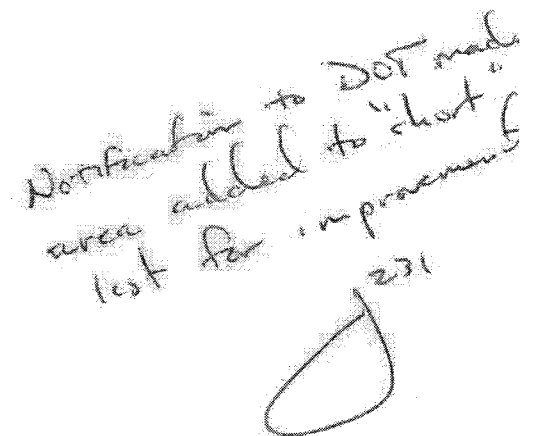 Notification to DOT made
area added to "short"
list for improvement
231